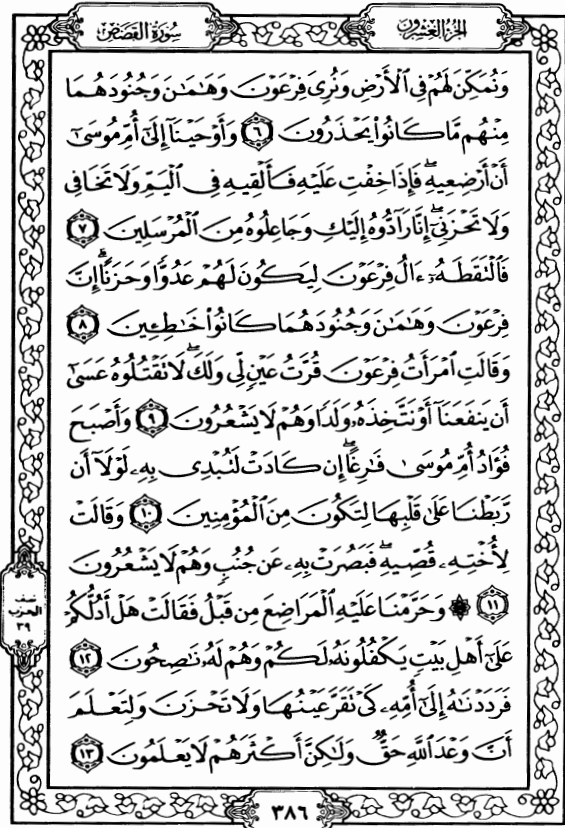 سُورَةُ القَصَصِ
الجُزءُ العِشْرُونَ
وَنُمَكِّنَ لَهُمْ فِي الْأَرْضِ وَنُرِيَ فِرْعَوْنَ وَهَامَانَ وَجُنُودَهُمَا
مِنْهُم مَّا كَانُوا۟ يَحْذَرُونَ ٦ وَأَوْحَيْنَآ إِلَىٰٓ أُمِّ مُوسَىٰٓ
أَنْ أَرْضِعِيهِ ۖ فَإِذَا خِفْتِ عَلَيْهِ فَأَلْقِيهِ فِي الْيَمِّ وَلَا تَخَافِي
وَلَا تَحْزَنِيٓ ۖ إِنَّا رَآدُّوهُ إِلَيْكِ وَجَاعِلُوهُ مِنَ الْمُرْسَلِينَ ٧
فَالْتَقَطَهُۥٓ ءَالُ فِرْعَوْنَ لِيَكُونَ لَهُمْ عَدُوًّا وَحَزَنًا ۗ إِنَّ
فِرْعَوْنَ وَهَٰمَٰنَ وَجُنُودَهُمَا كَانُوا۟ خَٰطِـِٔينَ ٨
وَقَالَتِ ٱمْرَأَتُ فِرْعَوْنَ قُرَّتُ عَيْنٍ لِّي وَلَكَ ۖ لَا تَقْتُلُوهُ عَسَىٰٓ
أَن يَنفَعَنَآ أَوْ نَتَّخِذَهُۥ وَلَدًا وَهُمْ لَا يَشْعُرُونَ ٩ وَأَصْبَحَ
فُؤَادُ أُمِّ مُوسَىٰ فَٰرِغًا ۖ إِن كَادَتْ لَتُبْدِي بِهِۦ لَوْلَآ أَن
رَّبَطْنَا عَلَىٰ قَلْبِهَا لِتَكُونَ مِنَ ٱلْمُؤْمِنِينَ ١٠ وَقَالَتْ
لِأُخْتِهِۦ قُصِّيهِ ۖ فَبَصُرَتْ بِهِۦ عَن جُنُبٍ وَهُمْ لَا يَشْعُرُونَ
١١ ۞ وَحَرَّمْنَا عَلَيْهِ ٱلْمَرَاضِعَ مِن قَبْلُ فَقَالَتْ هَلْ أَدُلُّكُمْ
عَلَىٰٓ أَهْلِ بَيْتٍ يَكْفُلُونَهُۥ لَكُمْ وَهُمْ لَهُۥ نَٰصِحُونَ ١٢
فَرَدَدْنَٰهُ إِلَىٰٓ أُمِّهِۦ كَيْ تَقَرَّ عَيْنُهَا وَلَا تَحْزَنَ وَلِتَعْلَمَ
أَنَّ وَعْدَ ٱللَّهِ حَقٌّ وَلَٰكِنَّ أَكْثَرَهُمْ لَا يَعْلَمُونَ ١٣
نصف
الحزب
٣٩
٣٨٦